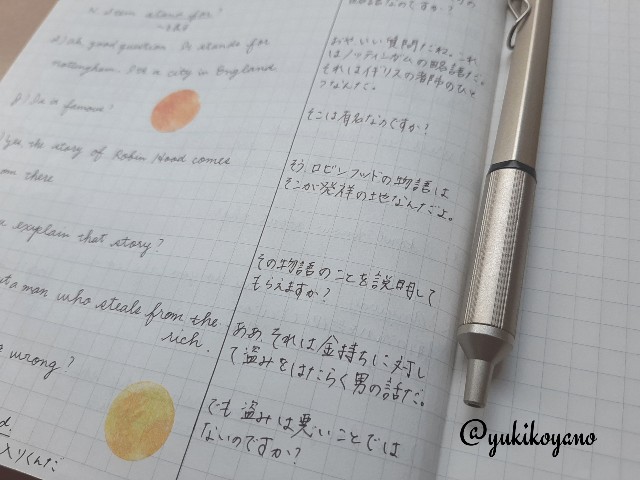 stand for?
ah, good question. It stands for
Nottingham. It's a city in England.
Is it famous?
yes, the story of Robin Hood comes
there
explain that story?
a man who steals from the
rich.
wrong?
入りくんだ
なのですか?
おや、いい質問だね。これ
はノッティンガムの略語だ。
それはイギリスの都市のひと
つなんだ。
そこは有名なのですか?
そう、ロビンフッドの物語は
そこが発祥の地なんだよ。
その物語のことを説明して
もらえますか?
ああ、それは金持ちに対し
て盗みをはたらく男の話だ。
でも盗みは悪いことでは
ないのですか?
@yukikoyano